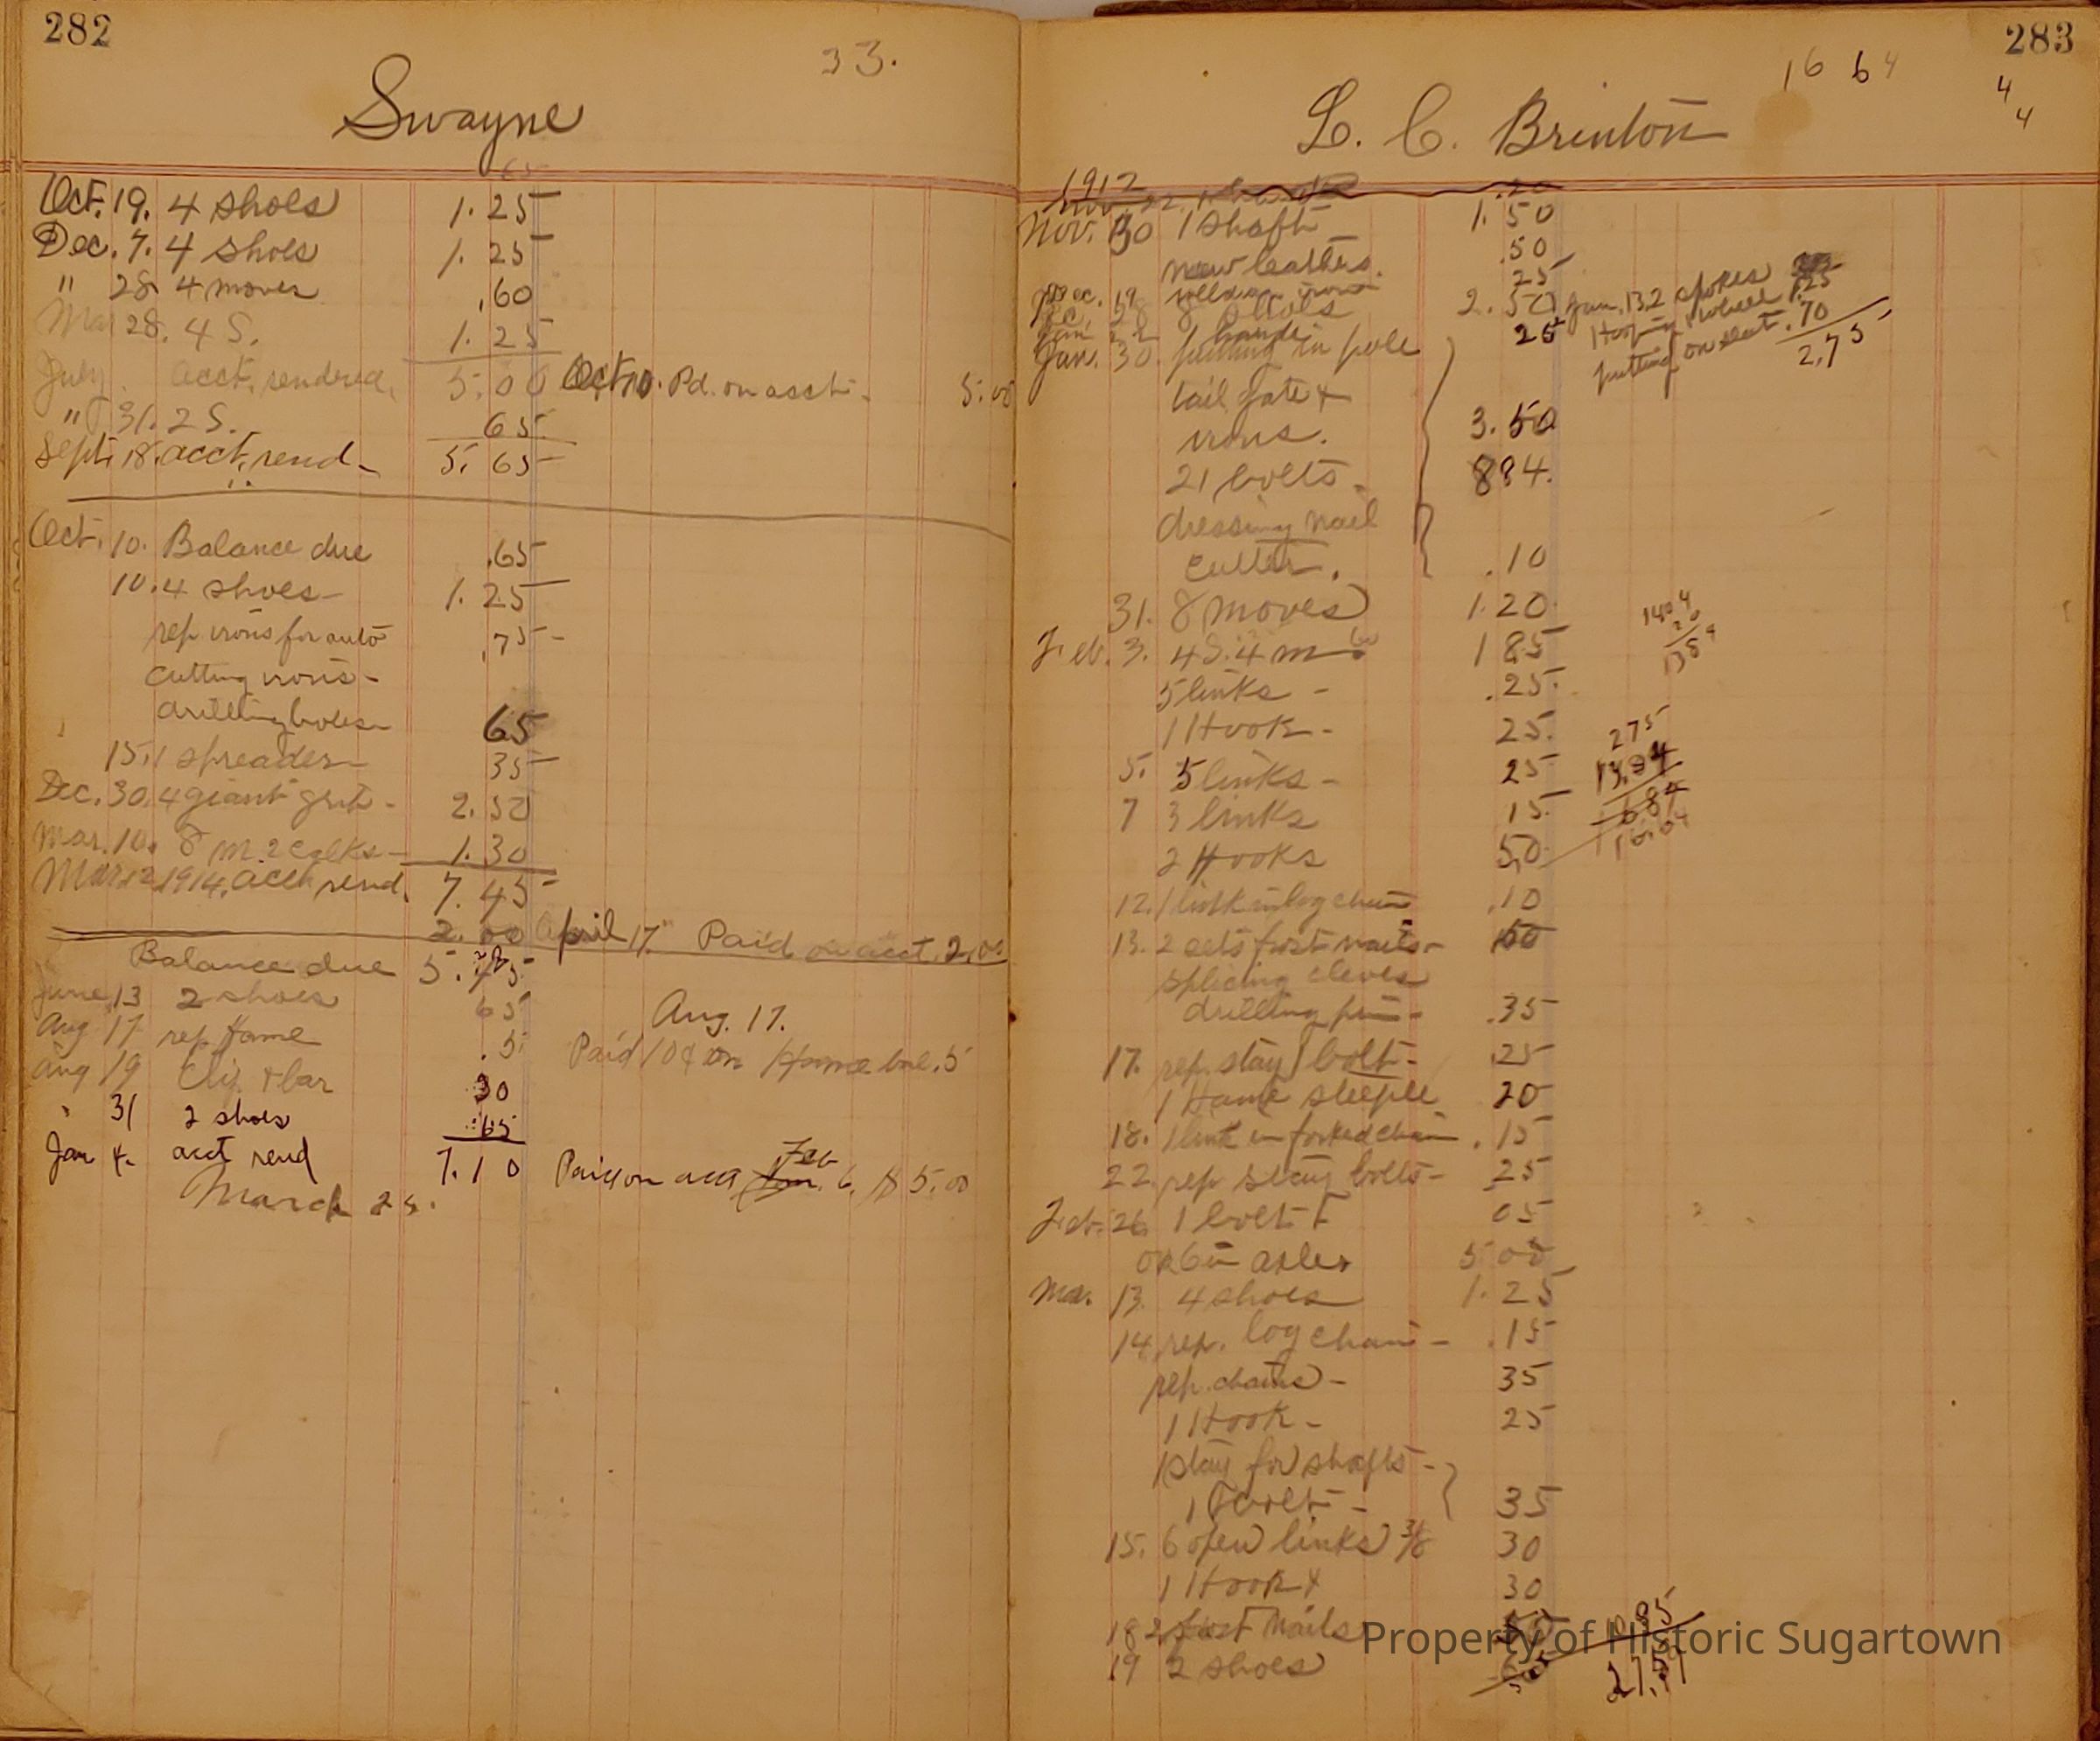 282
33.
Swayne
65
Oct. 19. 4 shoes 1.25
Dec. 7. 4 shoes 1.25
" 28. 4 moves .60
Mar 28. 4 S. 1.25
July. acct. rendered, 5.00 Oct. 10. Pd. on acct. 5.00
" 31. 2 S. 65
Sept. 18. acct. rend. 5.65
Oct. 10. Balance due .65
10. 4 shoes 1.25
rep. irons for auto .75
Cutting irons
drilling holes 65
15. 1 spreader 35
Dec. 30. 4 giant grip 2.50
Mar. 10. 8 m. 2 calks 1.30
Mar. 12 1914. acct rend. 7.45
2.00 April 17. Paid on acct. 2.00
Balance due 5.45
June 13 2 shoes 65
Aug 17 rep Hame .5
Aug. 17.
Paid 10¢ on Hame bal. 5
Aug 19 Clip & bar 30
" 31 2 shoes .65
Jan 4. acct rend 7.10 Paid on acct Feb 6, $5.00
March 25.
283
16 64
4
4
L. C. Brinton
1912
Nov. 22 .20
Nov. 30 1 shaft 1.50
new leathers. .50
Dec. 19 welding iron 25
Dec. 28 8 shoes 2.50
Jan. 13. 2 spokes
Hooping 1 wheel 1.25
putting on seat .70
2.75
25
Jan. 30. putting in pole
tail gate &
irons. 3.50
21 bolts 84.
dressing nail
cutter. .10
31. 8 moves 1.20
Feb. 3. 4 S. 4 m 1 85
5 links - .25
1 Hook - 25.
5. 5 links - 25
7 3 links 15
2 Hooks 50
275
13.94
12. 1 link in log chain .10
13. 2 sets frost nails 50
splicing cleves
drilling pin .35
17. rep. stay & bolt - .25
1 Hame steeple 20
18. 1 link in forked chain .15
22. rep stay bolts - 25
Feb. 26. 1 bolt & 05
axles 5 00
Mar. 13. 4 shoes 1.25
14. rep. log chain - .15
rep. chains - 35
1 Hook - 25
1 stay for shafts -
1 bolt - 35
15. 6 open links 3/8 30
1 Hook & 30
18 2 frost nails 50
10.85
19 2 shoes 65
27.59
Property of Historic Sugartown